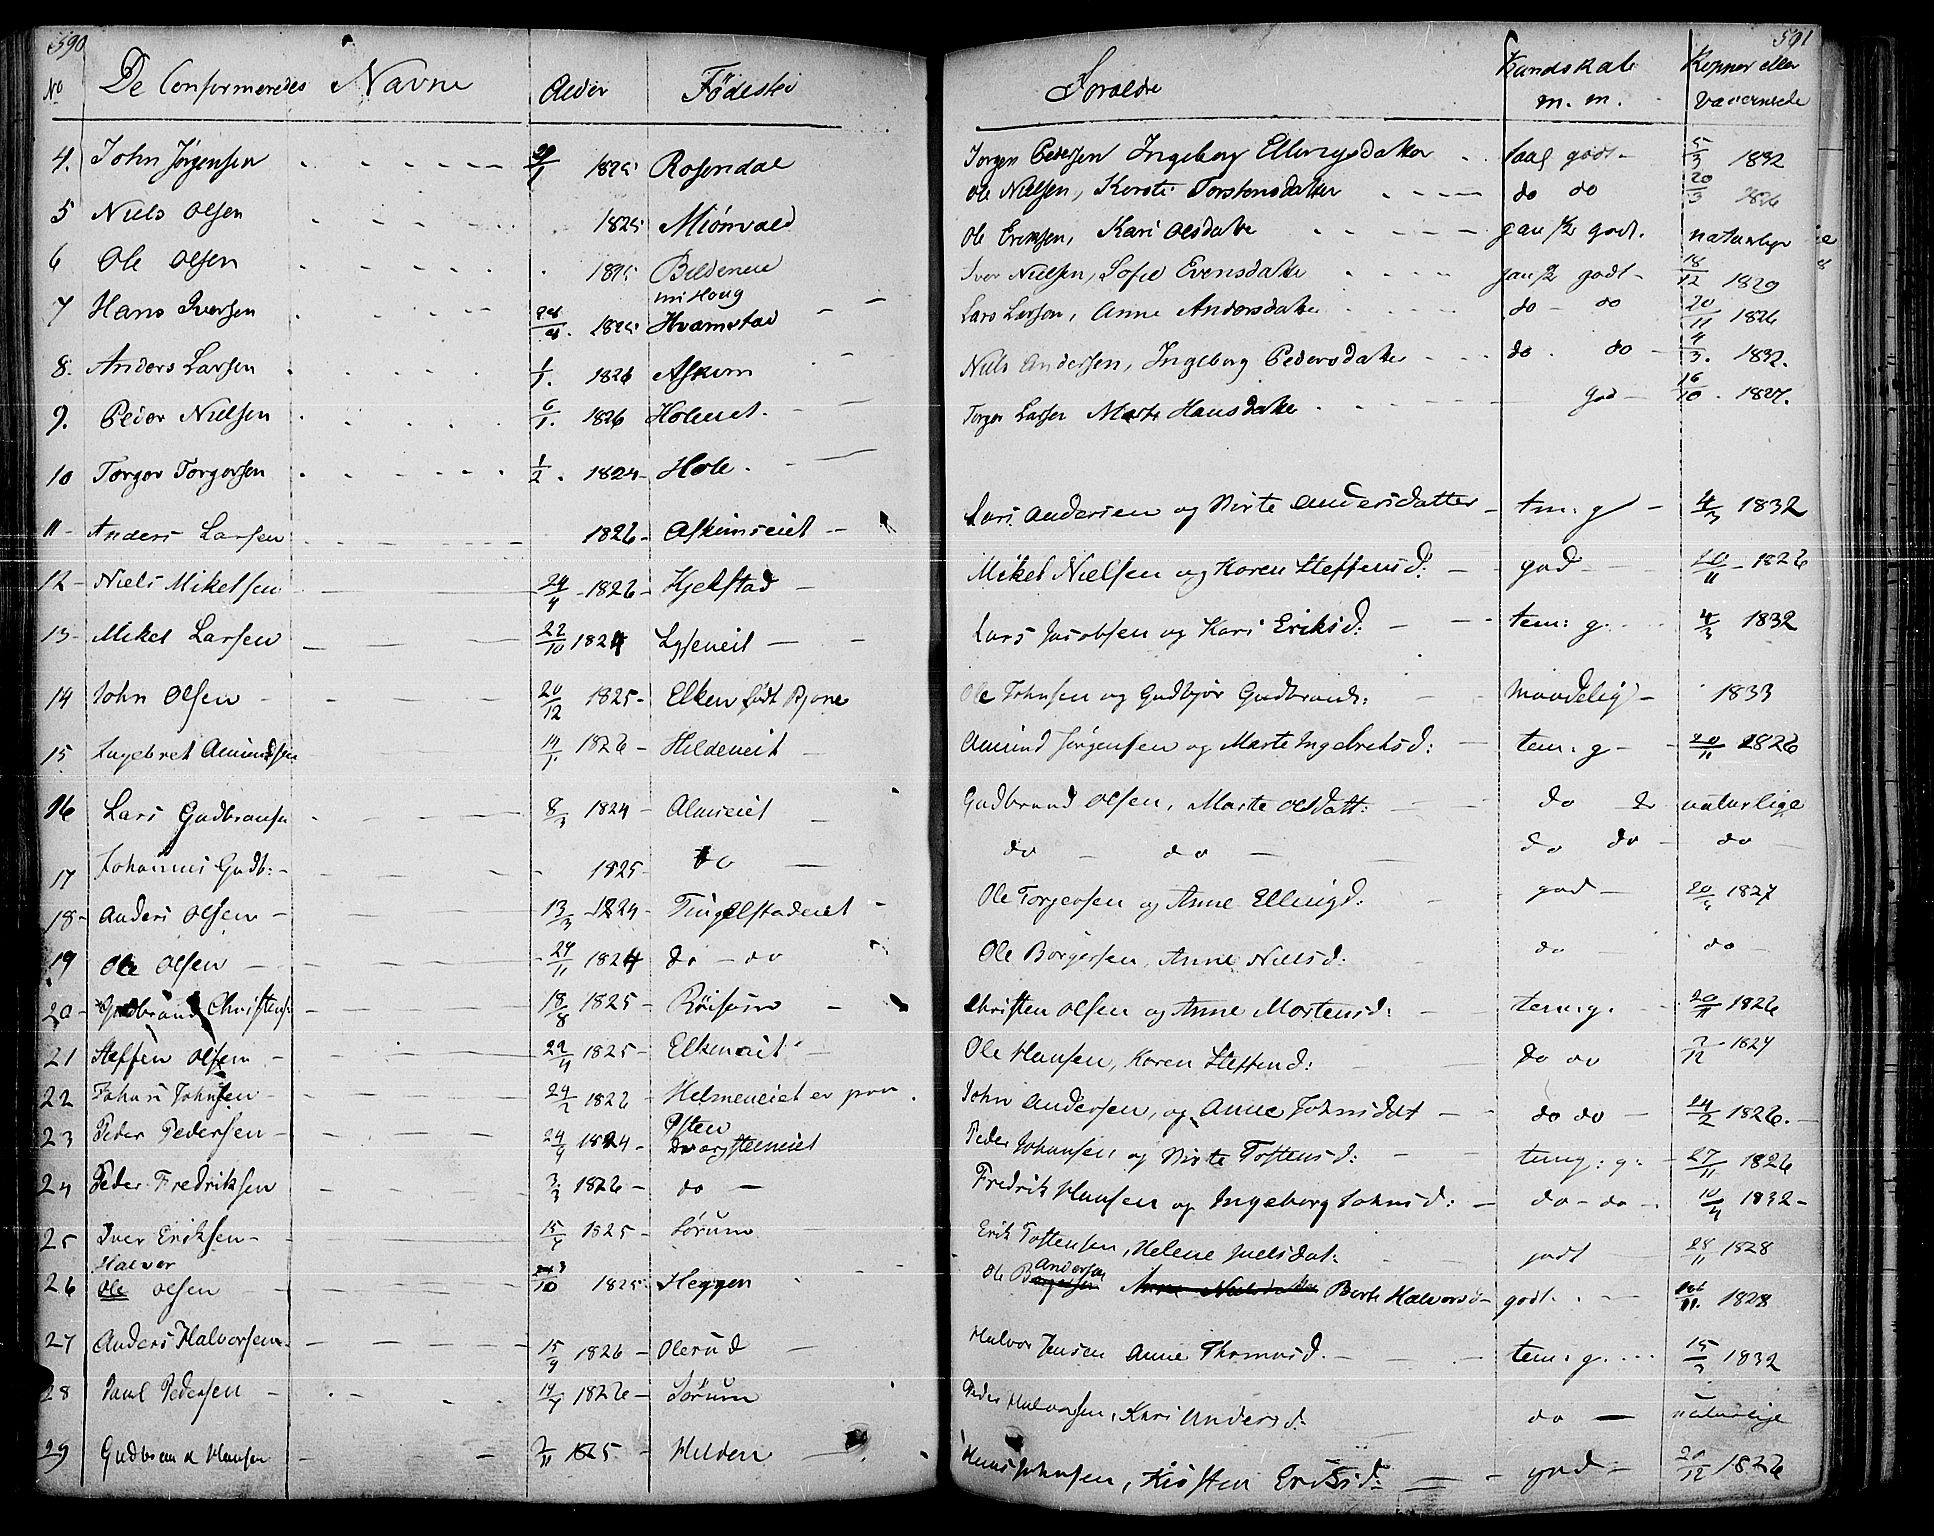 590
No De Confermeredes Navne Alder Fødested
4. John Jørgensen 1825 Rosendal
5 Niels Olsen 1825 Miónvald
6 Ole Olsen 1825
7 Hans Iversen 1825 Hvamstad
8. Anders Larsen 1/1. 1826 Askim
9. Peder Nielsen 6/1. 1826 Holmeiet.
10 Torger Torgersen 1/2. 1824 Hole.
11 Anders Larsen 1826 Askimseiet
12 Niels Mikelsen 24/4 1826 Kjekstad
13 Mikel Larsen 22/10 1824
14 John Olsen 20/12 1825 Elken født Bjone
15 Ingebret Amundsen 14/1. 1826 Hildeneiet
16 Lars Gudbransen 8/3 1824 Almseiet
17 Johannes Gudb: 1825 do
18 Anders Olsen 13/3 1824 Tingelstadeiet
19 Ole Olsen 24/11 1824 do do
20 Gudbrand Christens: 18/8 1825 Röisum
21 Steffen Olsen 1825 Elkeneiet
22 Johnsen 24/2 1826 Helmeneiet er
23 Peder Pedersen 24/9 1824
24 Peder Fredriksen 3/3 1826 do
25 Iver Eriksen 1825 Sørum
26 Halvor Ole Olsen 1825 Heggen
27 Anders Halvorsen 15/9 1826 Olerud
28 Paul Pedersen 1826 Sørum
29 Gudbrand Hansen 1825 Hilden
591
Foraeldre Kundskab m. m.
Jorgen Pedersen Ingeborg Ellingsdatter godt 5/3 1832
Ole Nielsen, Kersti Torstensdatter do do 20/3 1826
Ole Eriksen, Kari Olsdatter godt.
Iver Nielsen, Sofie Evensdatter godt 18/12 1829
Lars Larsen, Anne Andersdatter do do 20/11 1826
Niels Andersen, Ingeborg Pedersdatter do do 4/3. 1832.
Torger Larsen Marte Hansdatter god 16/10. 1827.
Lars Andersen og Birte Andersdatter tem: g 4/3 1832
Mikel Nielsen og Karen Steffensd: god 20/11 1826
Lars Jacobsen og Kari Eriksd: tem: g. 4/3 1832
Ole Johnsen og Gudbjør Gudbrands: maadelig 1833
Amund Jørgensen og Marte Ingebretsd: tem: g 20/11 1826
Gudbrand Olsen, Marte Olsdatt: do do naturlige
do do do do do
Ole Torgersen og Anne Ellingd: god 1827
Ole Borgersen, Anne Nielsd: do do
Christen Olsen og Anne Mortensd: tem: g. 20/11 1826
Ole Hansen, Karen Steffensd: do do 1827
John Andersen, og Anne Johnsdat do do 24/2 1826.
Peder Johansen og Birte Tostensd: temg: g: 27/11 1826
Fredrik Hansen og Ingeborg Johnsd: do do 10/4 1832
Erik Tostensen, Helene Juelsdat: godt 28/11 1828
Ole Andersen Borgersen Anne Nielsdatter Berte Halvorsd godt. 1828
Halvor Jensen Anne Thomasd. tem: g. 15/3 1832
Peder Halvorsen, Kari Andersd. do naturlige
Hans Johnsen, Kirsten Eriksd: god 1826